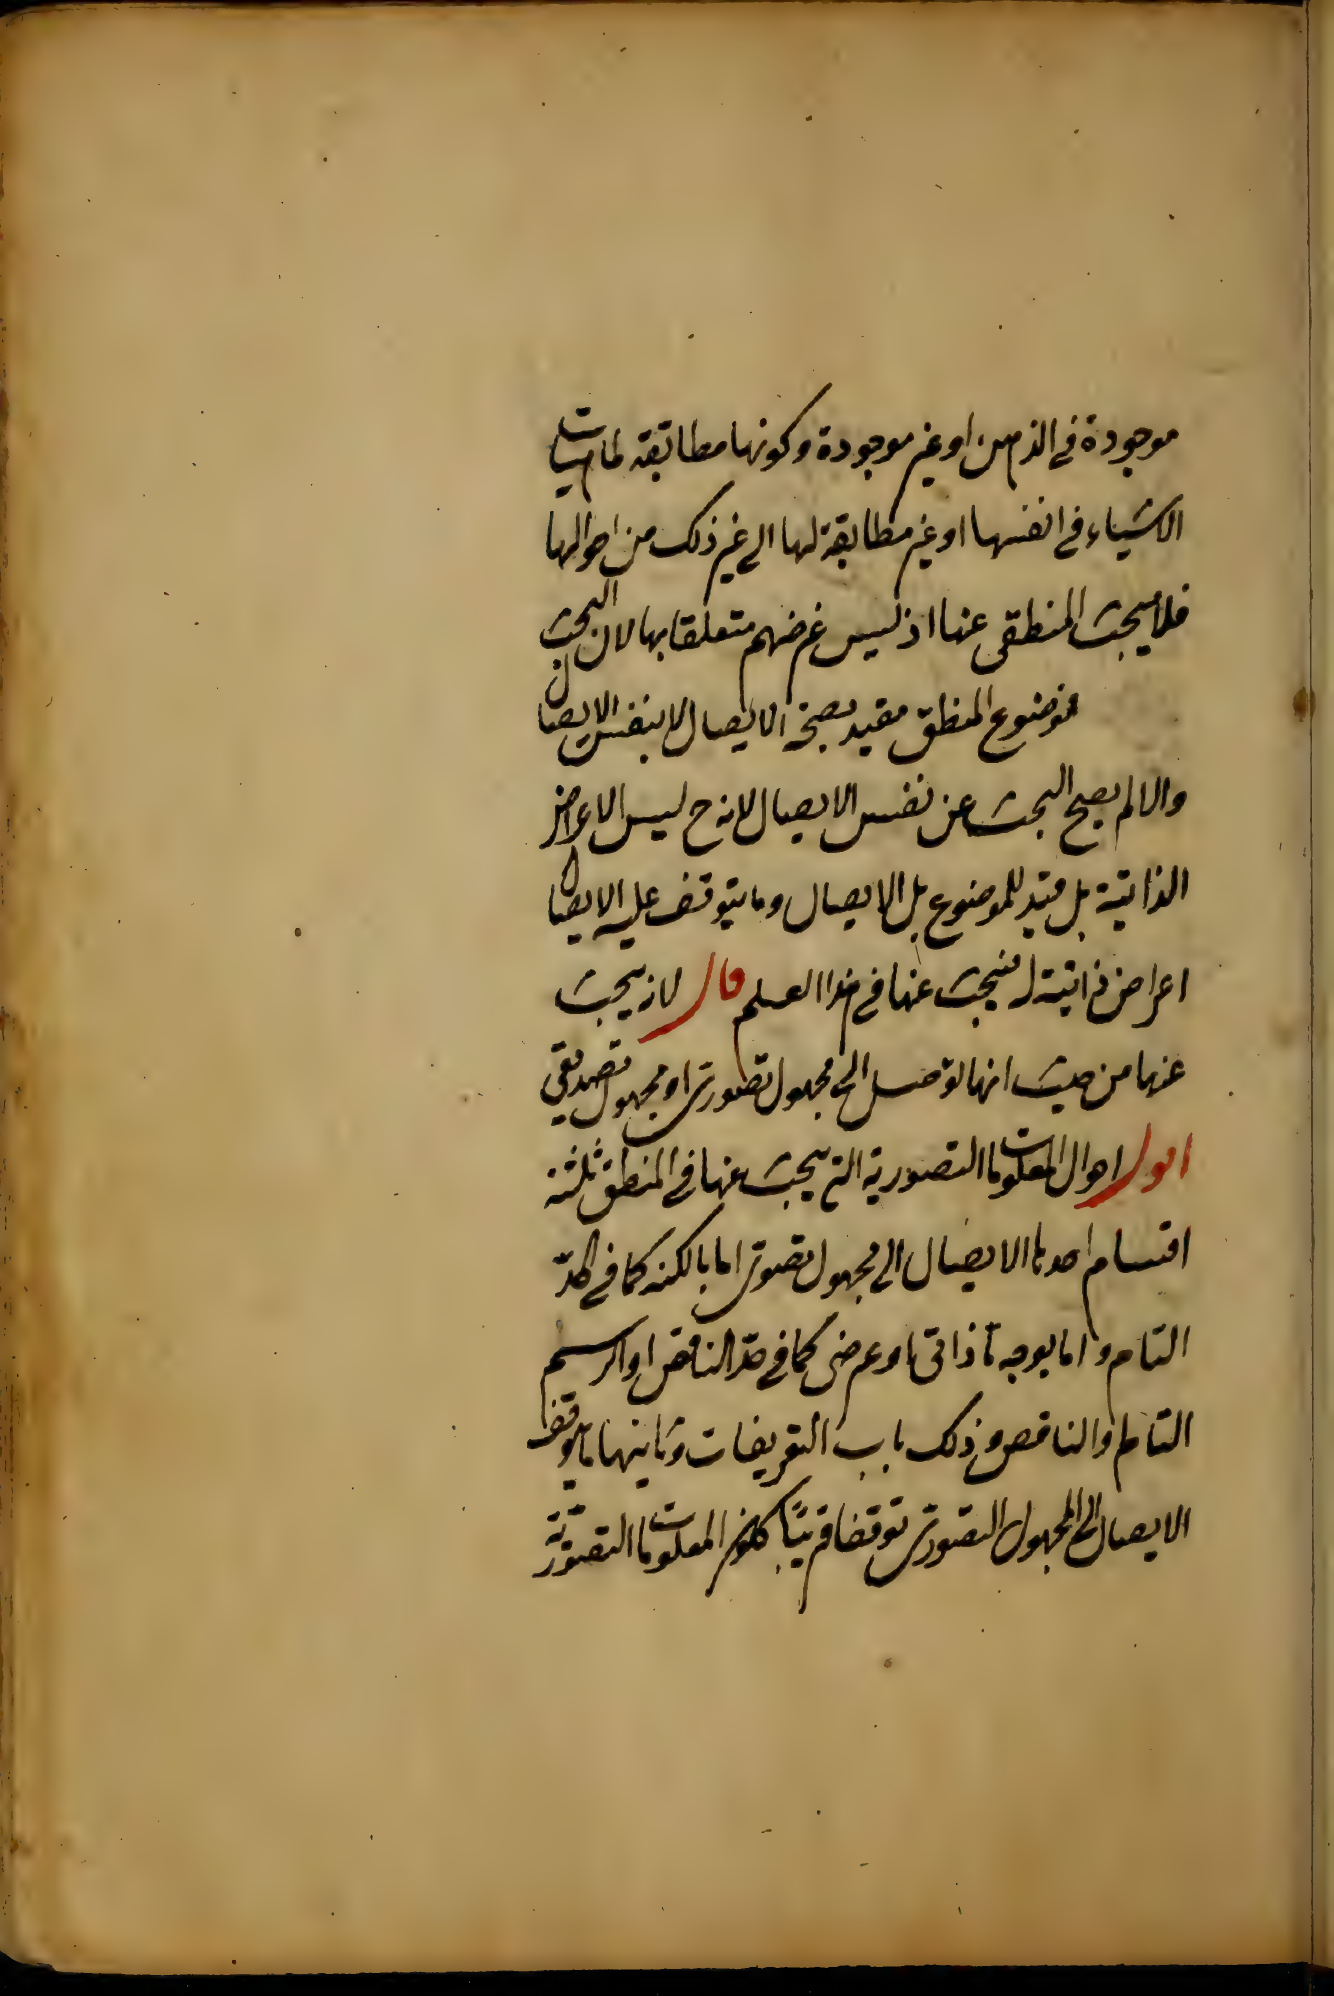 موجودة في الذهن او غير موجودة وكونها مطابقة لماهيات
الاشياء في انفسها او غير مطابقة لها الى غير ذلك من احوالها
فلا يبحث المنطقي عنها اذ ليس غرضهم متعلقا بها لان البحث
موضوع المنطق مقيد بصحة الايصال لا بنفس الايصال
والا لم يصح البحث عن نفس الايصال لانه ح ليس الاعراض
الذاتية بل قيد للموضوع بل الايصال وما يتوقف عليه الايصال
اعراض ذاتية له فيبحث عنها في هذا العلم قال لانه يبحث
عنها من حيث انها توصل الى مجهول تصوري او مجهول تصديقي
اقول احوال المعلومات التصورية التي يبحث عنها في المنطق ثلثة
اقسام احدها الايصال الى مجهول تصوري اما بالكنه كما في الحد
التام واما بوجه ما ذاتي او عرضي كما في حد الناقص او الرسم
التام والناقص وذلك باب التعريفات وثانيها ما يتوقف
الايصال الى المجهول التصوري توقفا قريبا ككون المعلومات التصورية